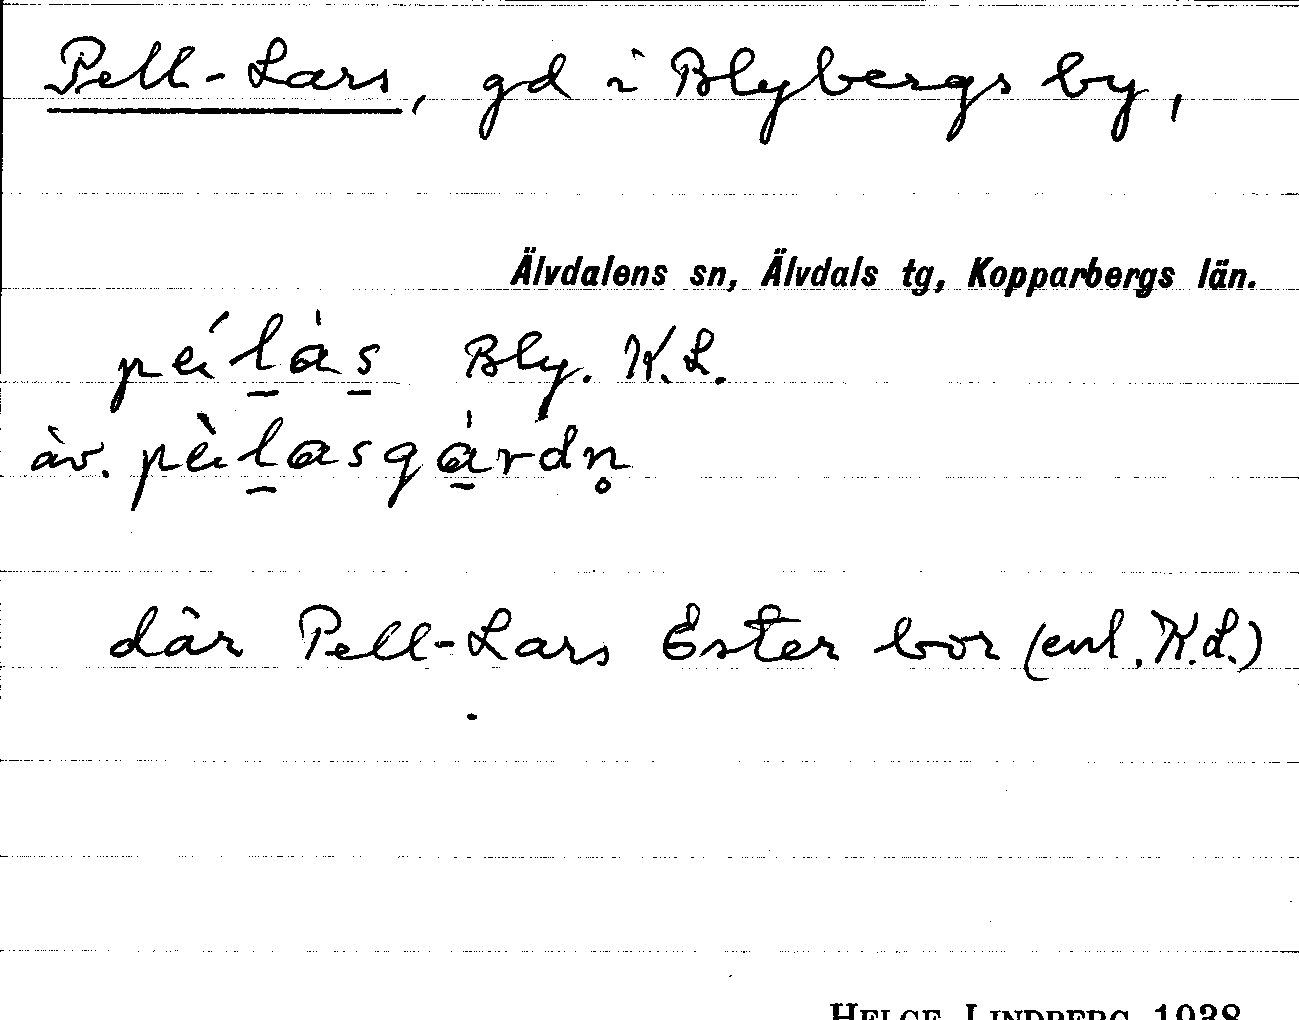 Pell-Lars, gd i Blybergs by,
Älvdalens sn, Älvdals tg, Kopparbergs län.
péi̯l̠a̍s̠ Bly. K.L.
äv. pèi̯l̠asga̠̍rdn̥
där Pell-Lars Ester bor (enl. K.L.)
HELGE LINDBERG 1938